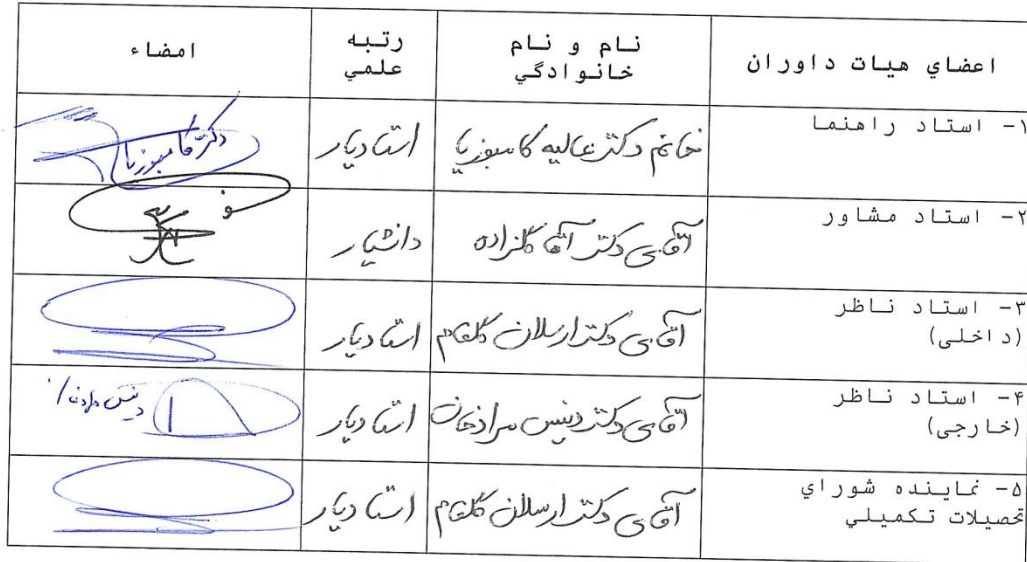 اعضاي هيات داوران
نام و نام خانوادگي
رتبه علمي
امضاء
۱- استاد راهنما
خانم دکتر عاليه کامبوزيا
استاديار
دکتر کامبوزيا
۲- استاد مشاور
آقاي دکتر آقاگلزاده
دانشيار
۳- استاد ناظر
(داخلی)
آقاي دکتر ارسلان گلفام
استاديار
۴- استاد ناظر
(خارجی)
آقاي دکتر دنيس
استاديار
دنيس
۵- نماينده شوراي
تحصيلات تکميلي
آقاي دکتر ارسلان گلفام
استاديار